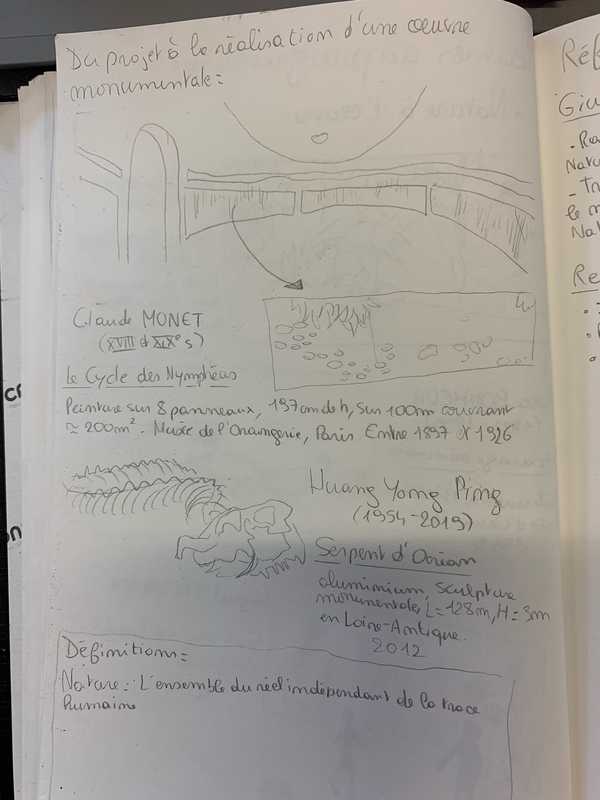 Du projet à la réalisation d'une œuvre
monumentale :
Claude MONET
(XVIII et XIXe s)
Le Cycle des Nymphéas
Peinture sur 8 panneaux, 197cm de h, sur 100m couvrant
≈ 200m². Musée de l'Orangerie, Paris Entre 1897 et 1926
Huang Yong Ping
(1954-2019)
Serpent d'Océan
aluminium, sculpture
monumentale, L=128m, H=3m
en Loire-Antique.
2012
Définitions =
Nature = L'ensemble du réel indépendant de la trace
humaine
Réf
Giu
Natu
le m
Nat
Re